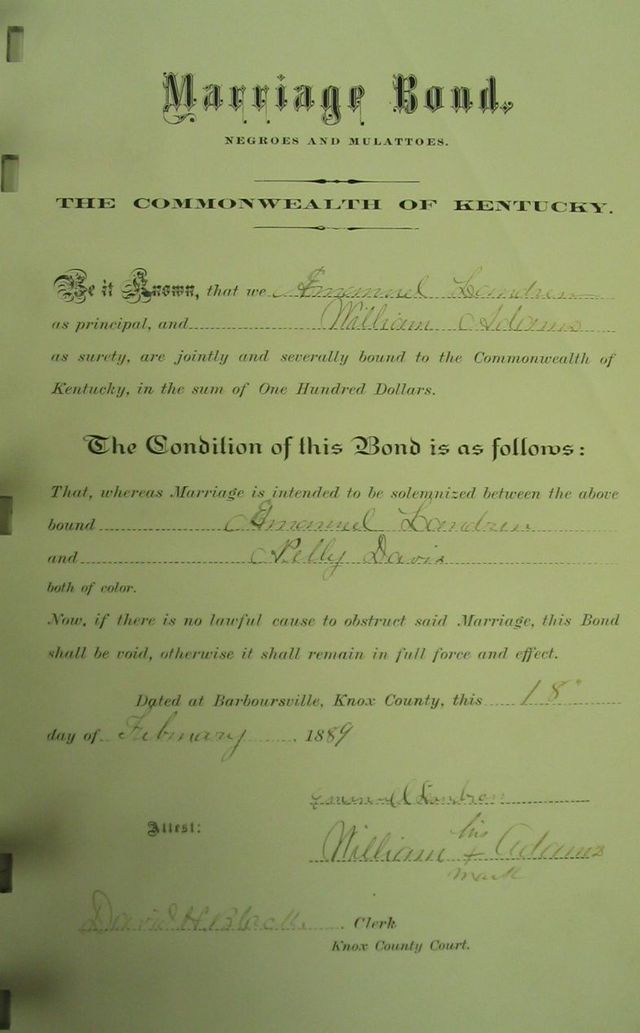 Marriage Bond.
NEGROES AND MULATTOES.
THE COMMONWEALTH OF KENTUCKY.
Be it Known, that we Emanuel Landren
as principal, and William Adams
as surety, are jointly and severally bound to the Commonwealth of
Kentucky, in the sum of One Hundred Dollars.
The Condition of this Bond is as follows:
That, whereas Marriage is intended to be solemnized between the above
bound Emanuel Landren
and Nelly Davis
both of color.
Now, if there is no lawful cause to obstruct said Marriage, this Bond
shall be void, otherwise it shall remain in full force and effect.
Dated at Barboursville, Knox County, this 18"
day of February, 1889
Landren
Attest:
his
William + Adams
mark
David H. Black Clerk
Knox County Court.